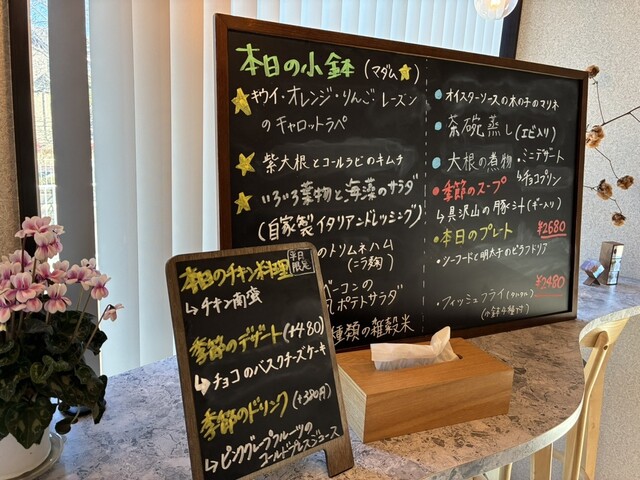 本日の小鉢(マダム★)
キウイ・オレンジ・りんご・レーズン
のキャロットラペ
紫大根とコールラビのキムチ
いろいろ葉物と海藻のサラダ
(自家製イタリアンドレッシング)
のトリムネハム
(こうじ麹)
ベーコンの
ポテトサラダ
種類の雑穀米
オイスターソースの木の子のマリネ
茶碗蒸し(エビ入り)
大根の煮物
・ミニデザート
↳チョコプリン
・季節のスープ
↳具沢山の豚汁(ギー入り)
¥2680
・本日のプレート
シーフードと明太子のピラフドリア
¥2480
・フィッシュフライ(タルタル)
(小鉢4種付)
本日のチキン料理
平日限定
↳チキン南蛮
季節のデザート(+480)
↳チョコのバスクチーズケーキ
季節のドリンク(+380円)
↳ピンクグレープフルーツの
コールドプレスジュース